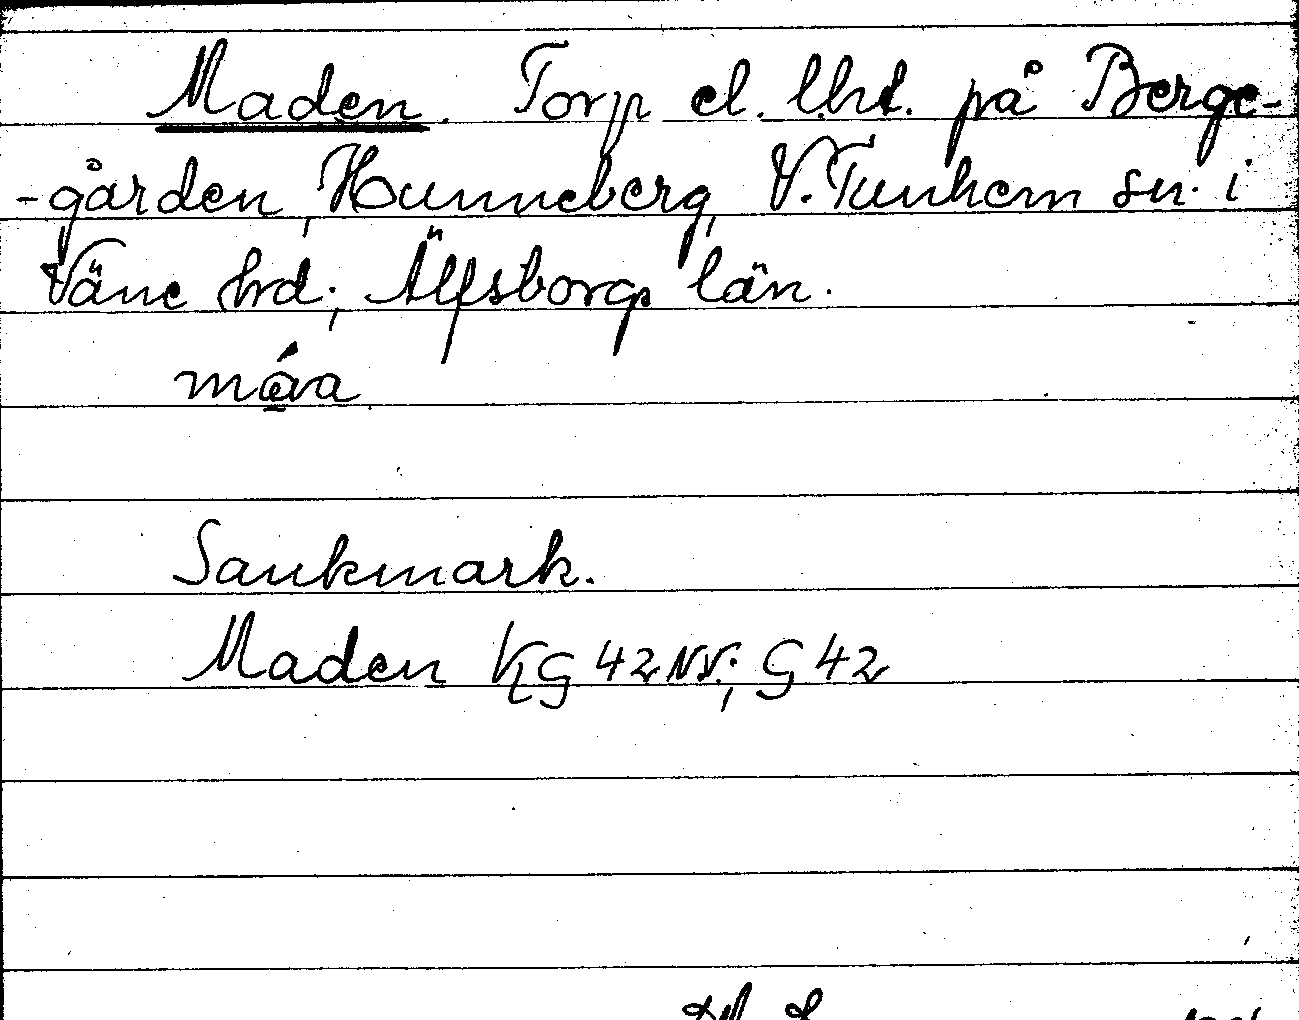 Maden. Torp el. lht. på Berge-
-gården, Hunneberg, V. Tunhem sn. i
Väne hrd; Älfsborgs län.
Sankmark.
Maden KG 42 NV.; G 42